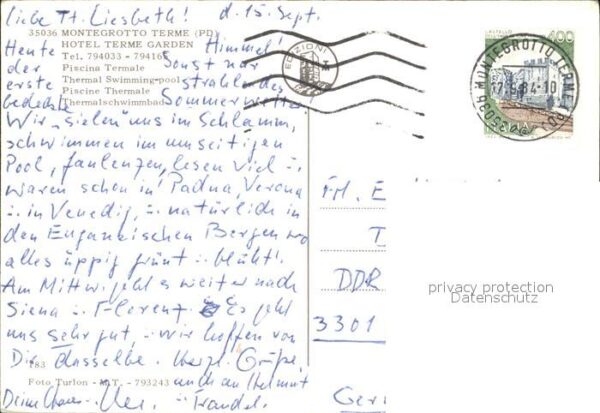 Liebe Tt. Liesbeth! d. 15. Sept.
35036 MONTEGROTTO TERME (PD)
HOTEL TERME GARDEN
Tel. 794033 - 79416
Piscina Termale
Thermal Swimming-pool
Piscine Thermale
Thermalschwimmbad
Heute Himmel!
der Sonst nur
erste strahlendes
bedeckte Sommerwetter.
Wir "sielen" uns im Schlamm,
schwimmen im umseitigen
Pool, faulenzen, lesen viel u.
waren schon in Padua, Verona
u. in Venedig, u. natürlich in
den Euganeischen Bergen wo
alles üppig grünt u. blüht!
Am Mittw. geht es weiter nach
Siena u. Florenz. Es geht
uns sehr gut, u. wir hoffen von
Dir dasselbe. Herzl. Grüße,
auch an Helmut
Deine
183
Foto Turlon - M.T. - 793243
EDIZIONI
400
ITALIA
35036 MONTEGROTTO TERME (PD)
17.9.84-10
FM. E
T
DDR
3301
Ger
privacy protection
Datenschutz